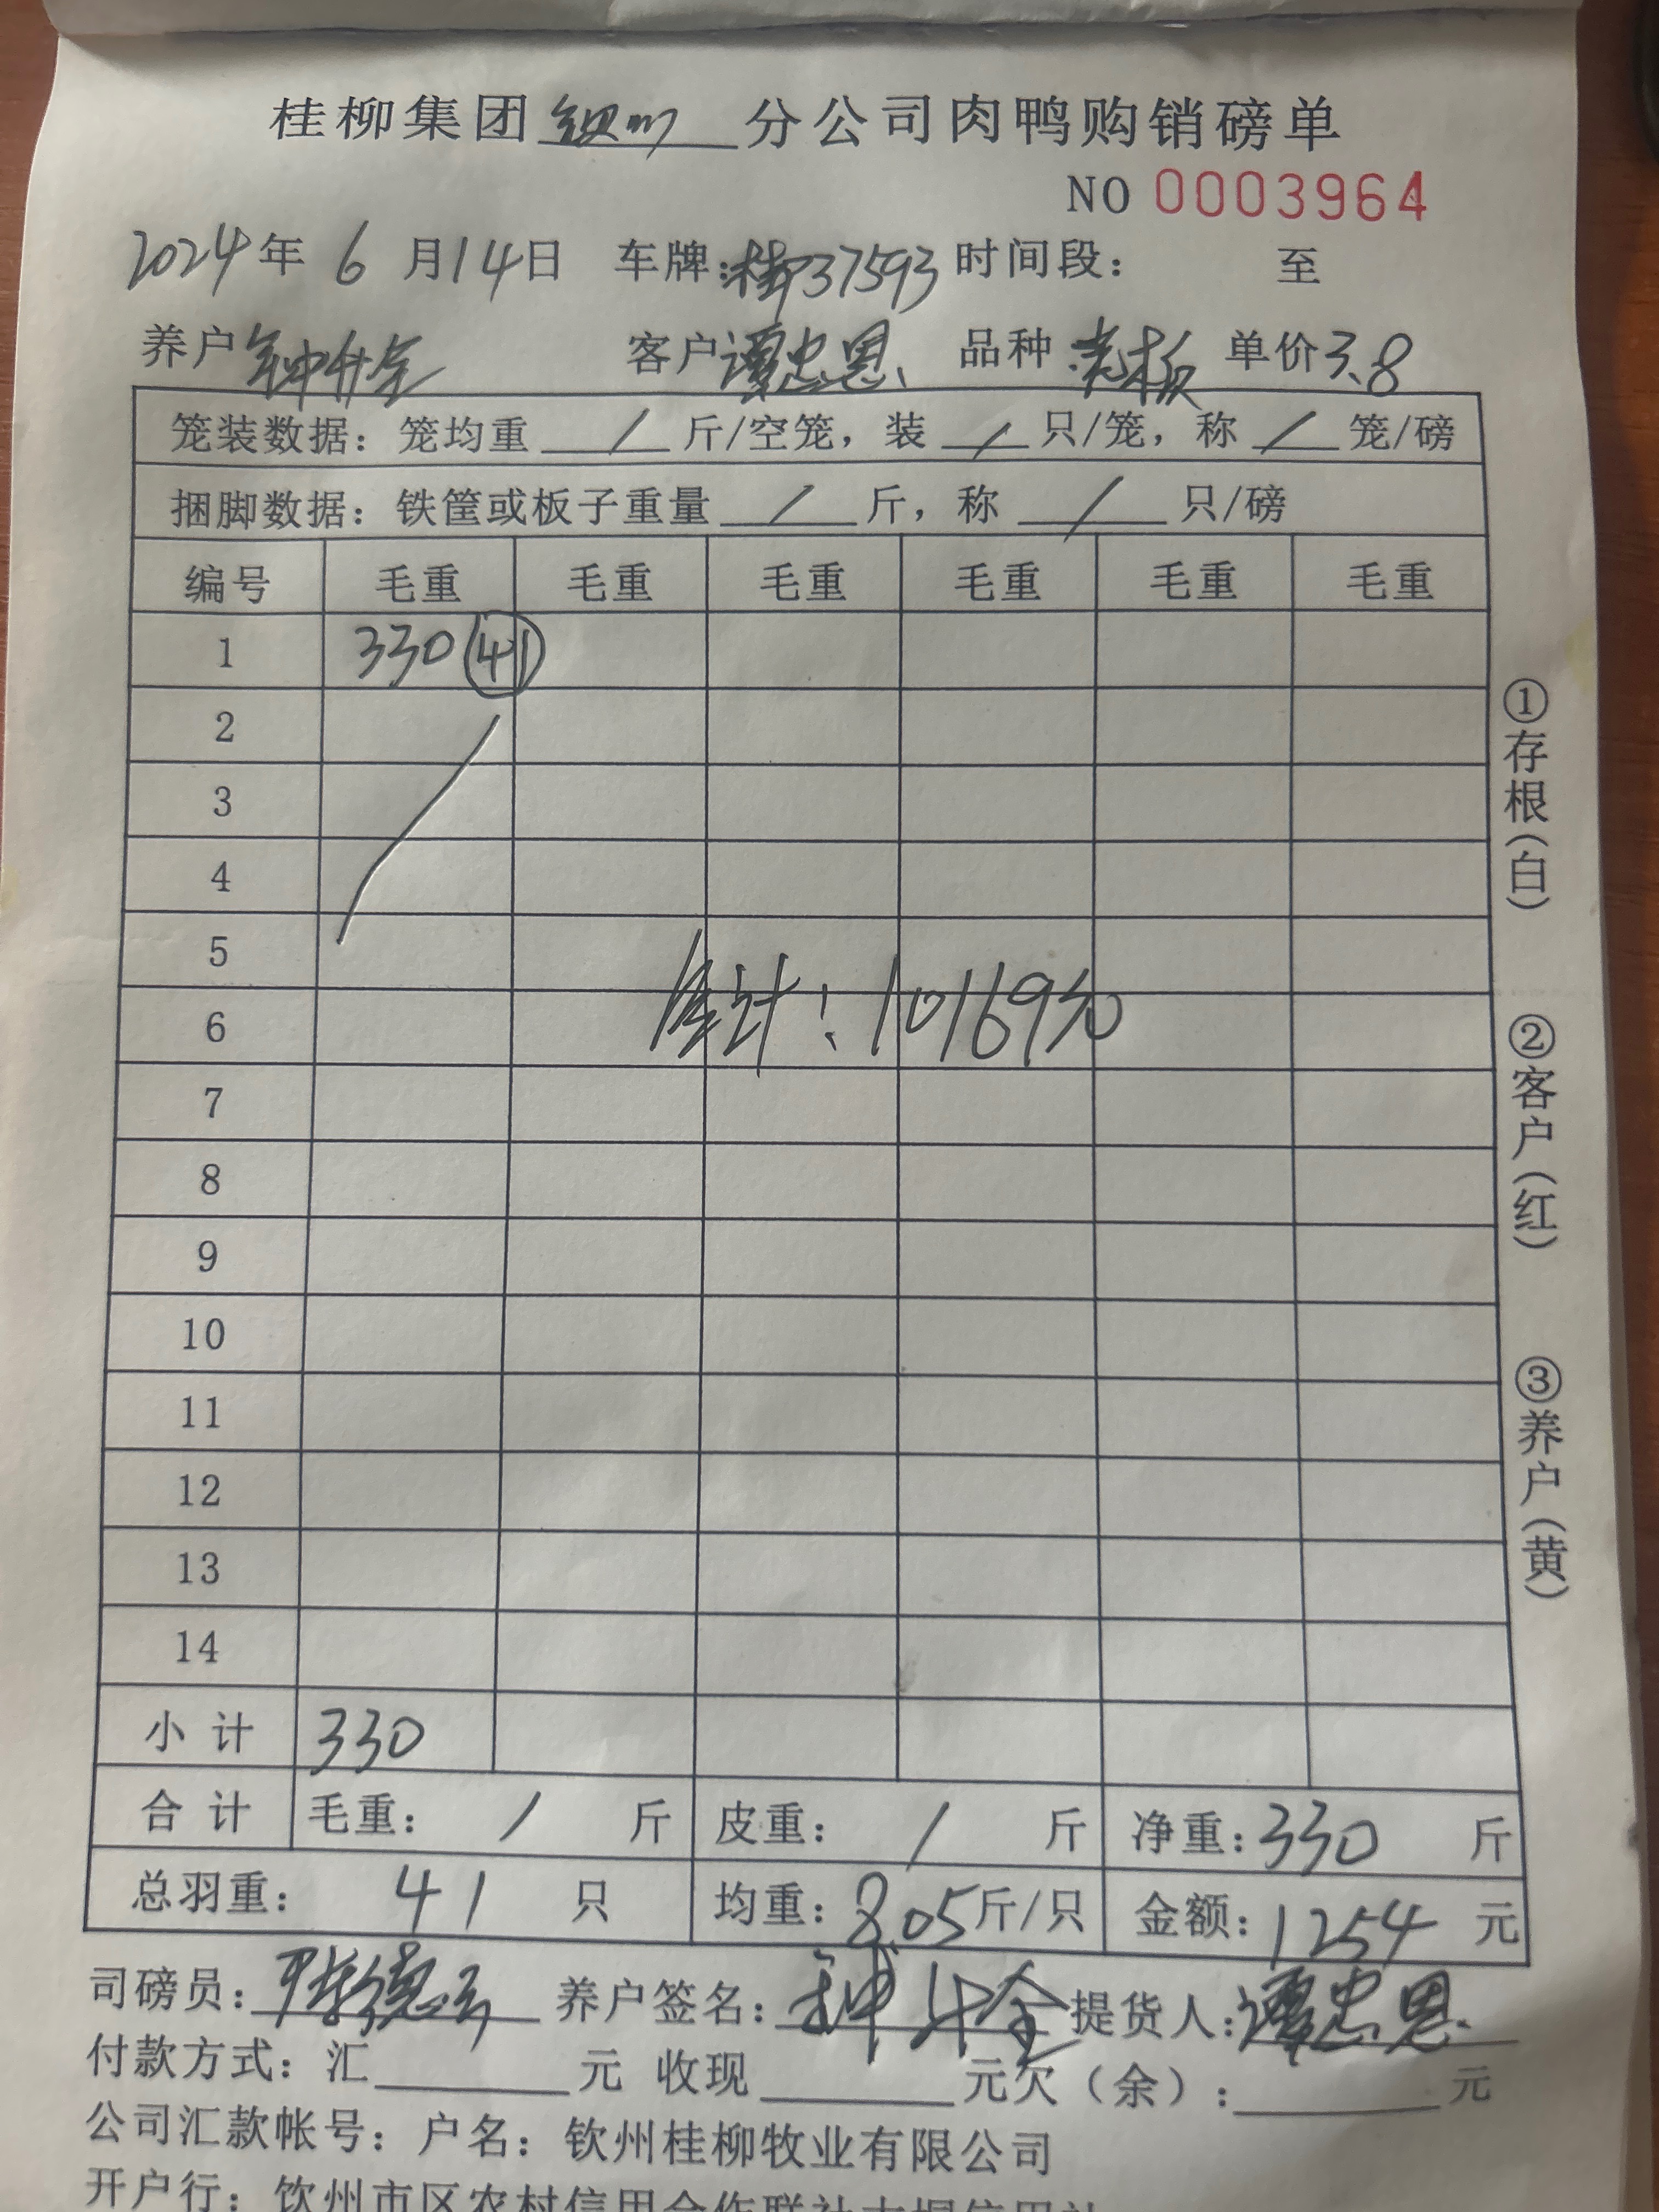 桂柳集团钦州分公司肉鸭购销磅单
NO 0003964
2024年 6 月14日 车牌:桂P37593 时间段: 至
养户 钟升全 客户 谭忠恩 品种: 老板 单价3.8
笼装数据: 笼均重 / 斤/空笼, 装 / 只/笼, 称 / 笼/磅
捆脚数据: 铁筐或板子重量 / 斤, 称 / 只/磅
编号 毛重 毛重 毛重 毛重 毛重 毛重
1 330 41
2
3
4
5
6 合计: 10169元
7
8
9
10
11
12
13
14
小 计 330
合 计 毛重: / 斤 皮重: / 斤 净重:330 斤
总羽重: 41 只 均重: 8.05斤/只 金额: 1254 元
司磅员: 养户签名: 钟升全 提货人: 谭忠恩
付款方式: 汇 元 收现 元欠(余): 元
公司汇款帐号: 户名: 钦州桂柳牧业有限公司
开户行: 钦州市区农村信用合作联社大垌信用社
①存根(白)
②客户(红)
③养户(黄)